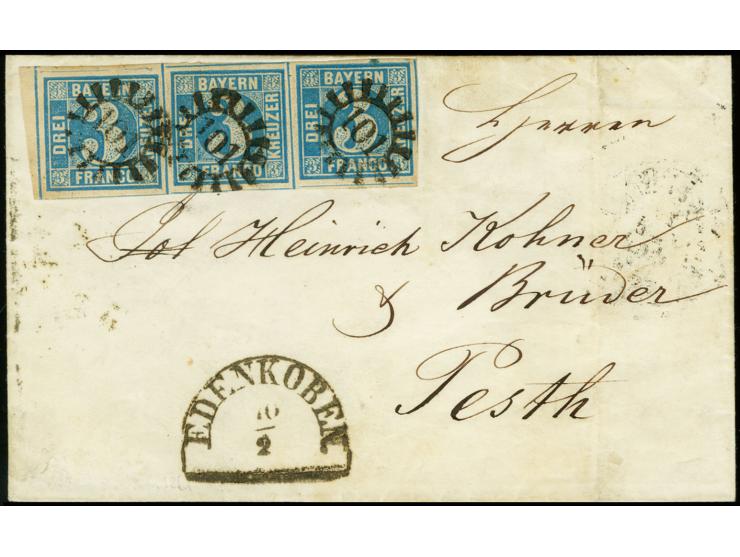 BAYERN
DREI
3
KREUZER
FRANCO
101
BAYERN
DREI
3
KREUZER
FRANCO
101
BAYERN
DREI
3
KREUZER
FRANCO
101
Herren
Heinrich Kohner
& Brüder
Pesth
EDENKOBEN
10
2